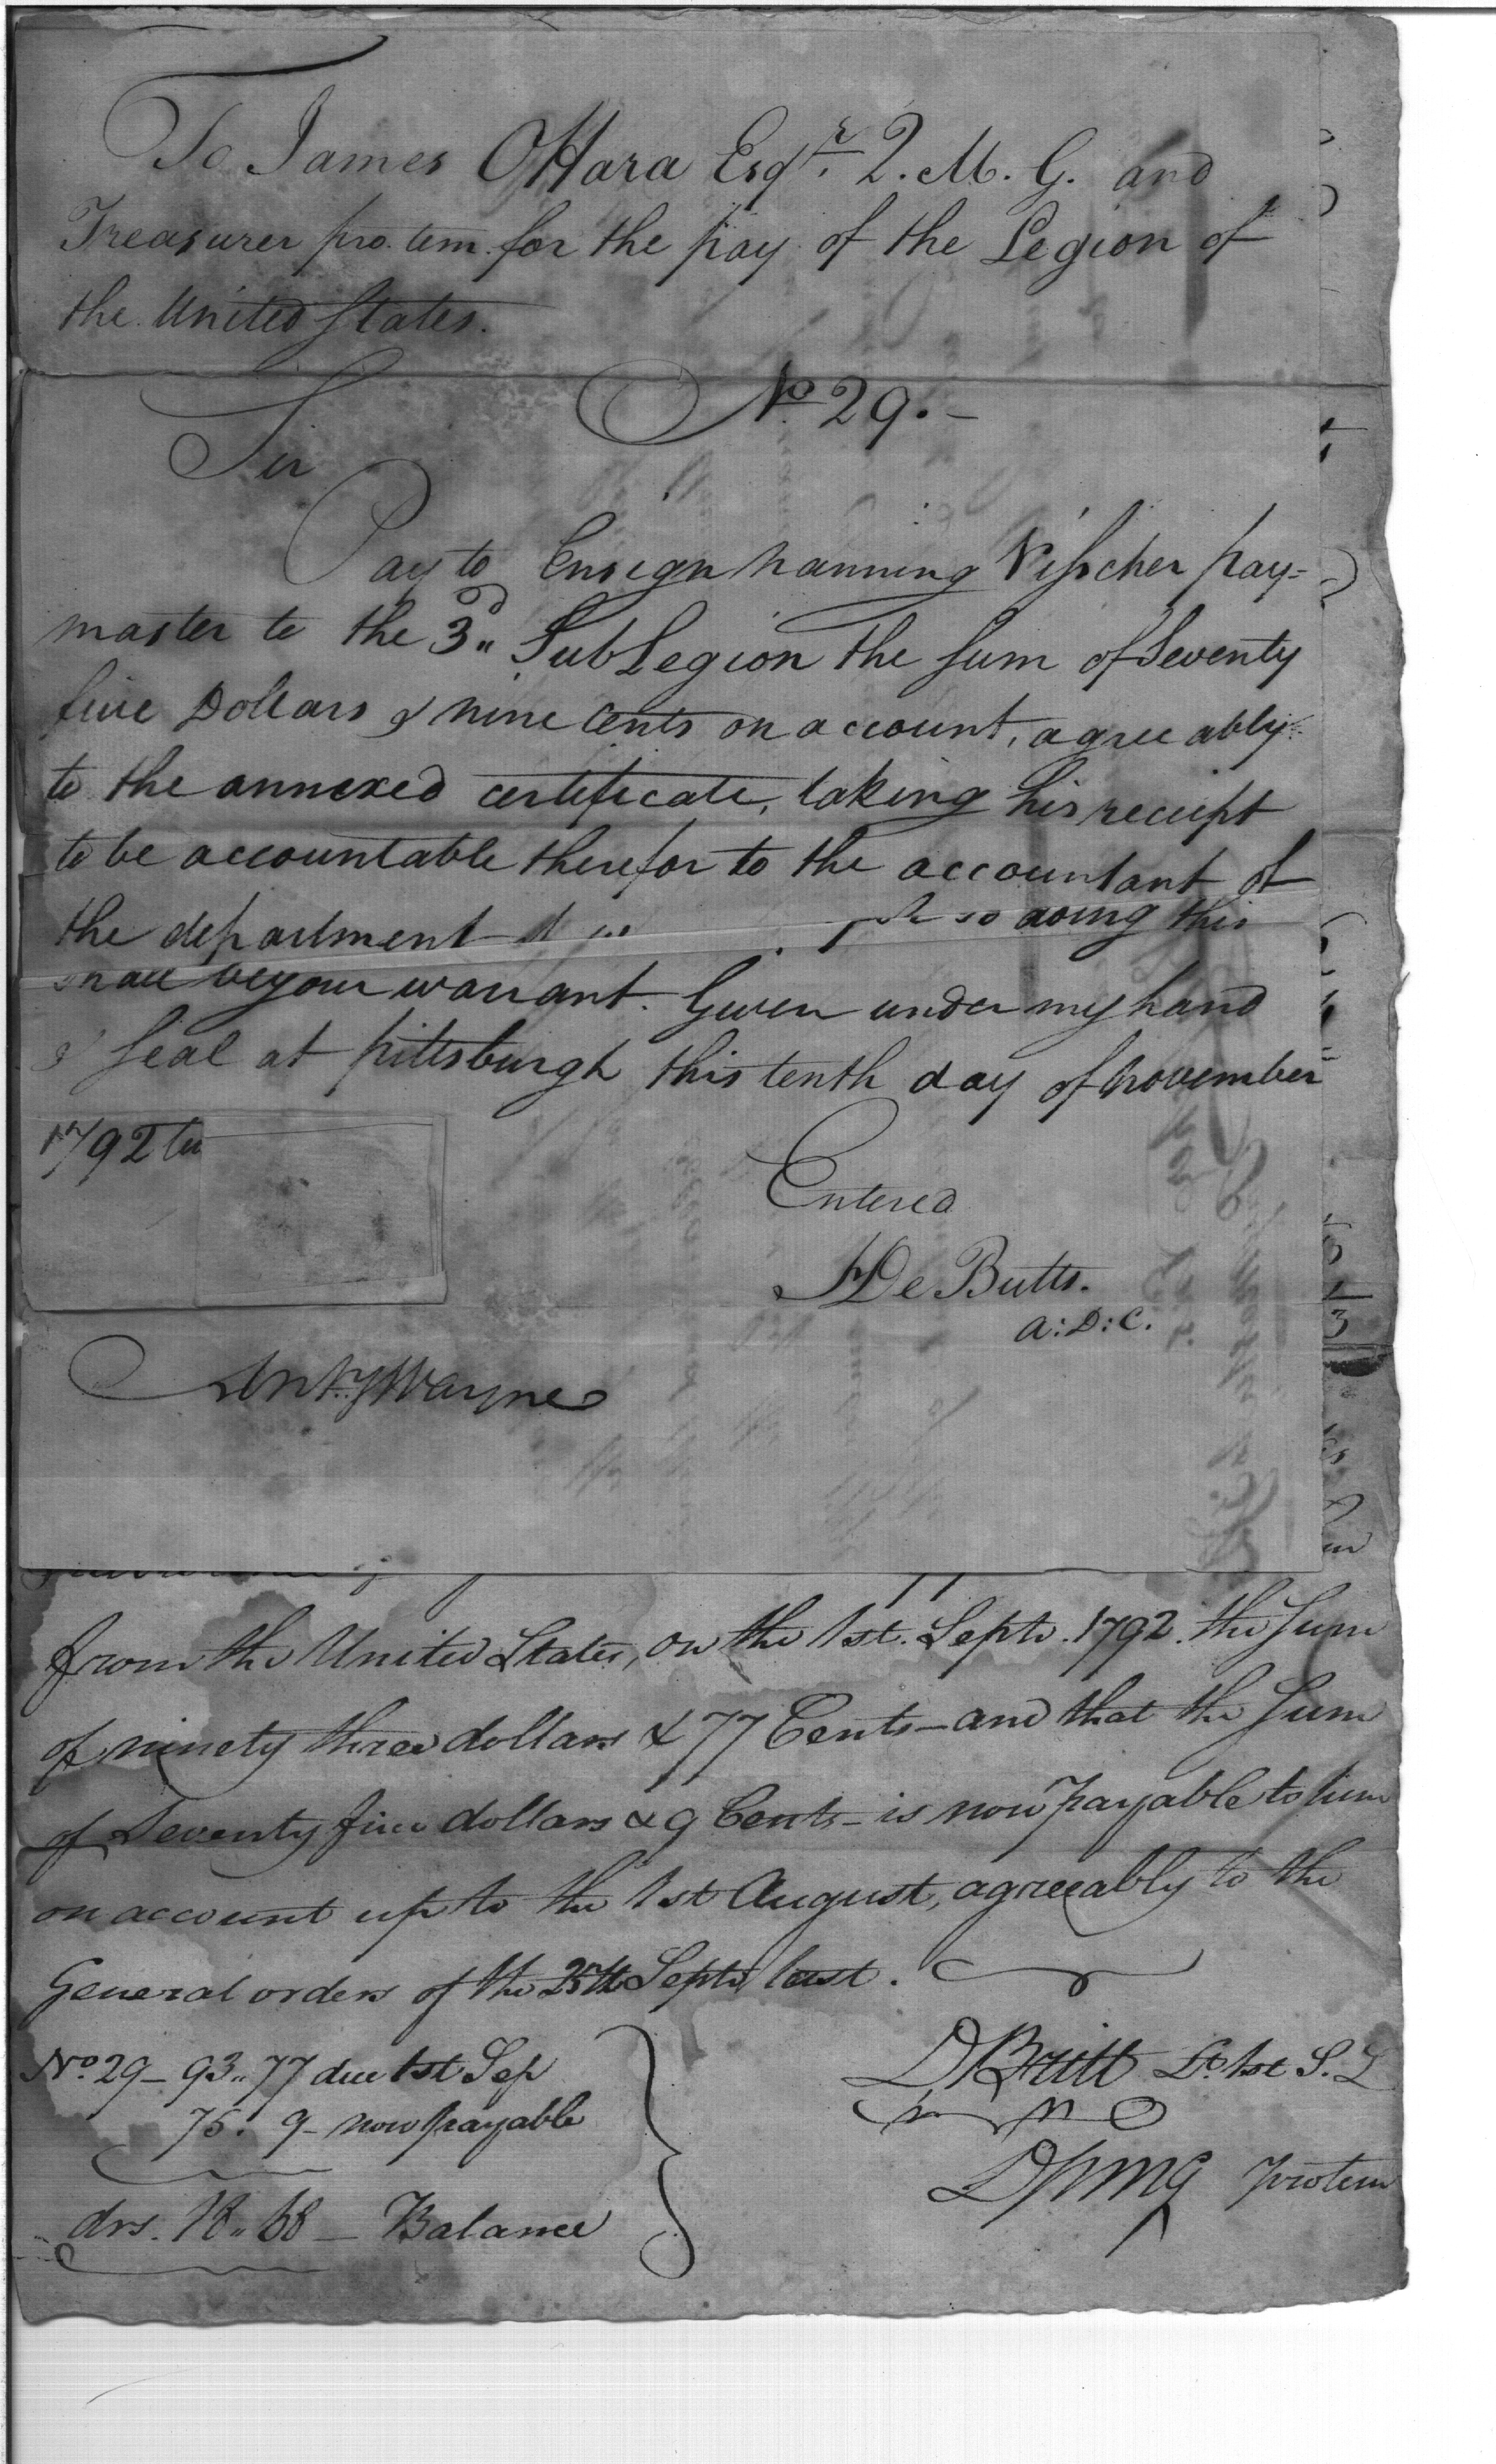 To James OHara Esqr. Q. M. G. and
Treasurer pro. tem. for the pay of the Legion of
the United States.
No 29. -
Sir
Pay to Ensign Nanning Visscher pay=
master to the 3d SubLegion the sum of Seventy
five Dollars & nine Cents on account, agreeably
to the annexed certificate, taking his receipt
to be accountable therefor to the accountant of
the department so doing this
shall be your warrant. Given under my hand
& seal at pittsburgh this tenth day of November
1792
Entered
HDe Butts.
A: D: C.
Anty Wayne
from the United States, on the 1st. Septr. 1792. the Sum
of ninety three dollars & 77 Cents - and that the Sum
of Seventy five dollars & 9 Cents - is now payable to him
on account up to the 1st August, agreeably to the
General orders of the 25th Septr last.
No. 29 - 93.. 77 due 1st Sep
75. 9 - now payable
drs. 18.. 68 - Balance
DBritt Lt. 1st S. L
DPMG protem